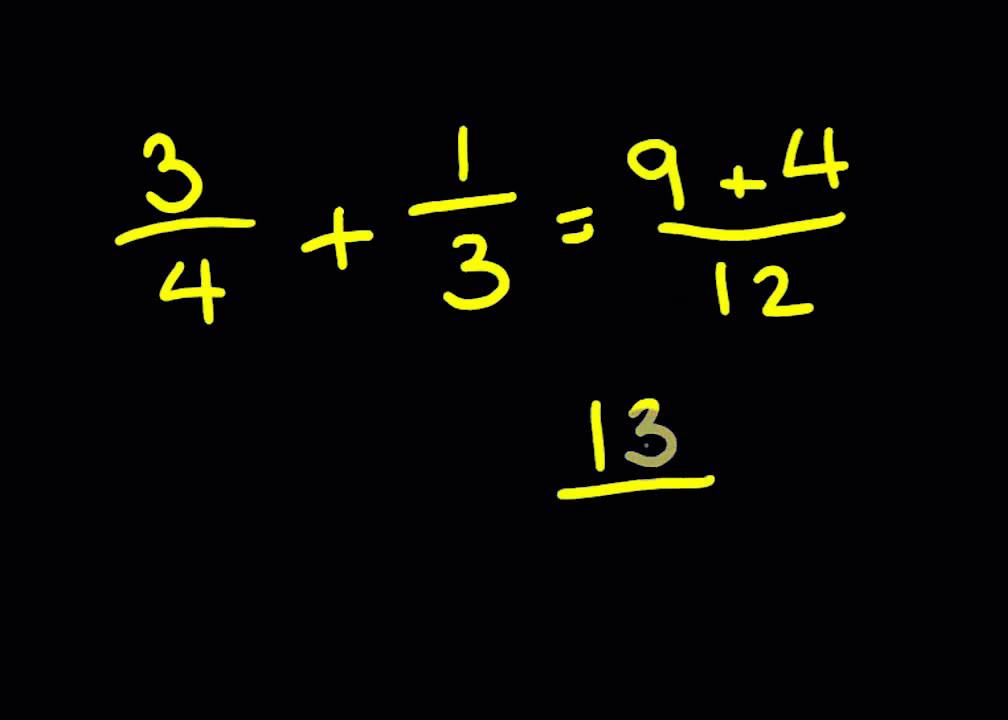 3/4 + 1/3 = 9 + 4/12
13